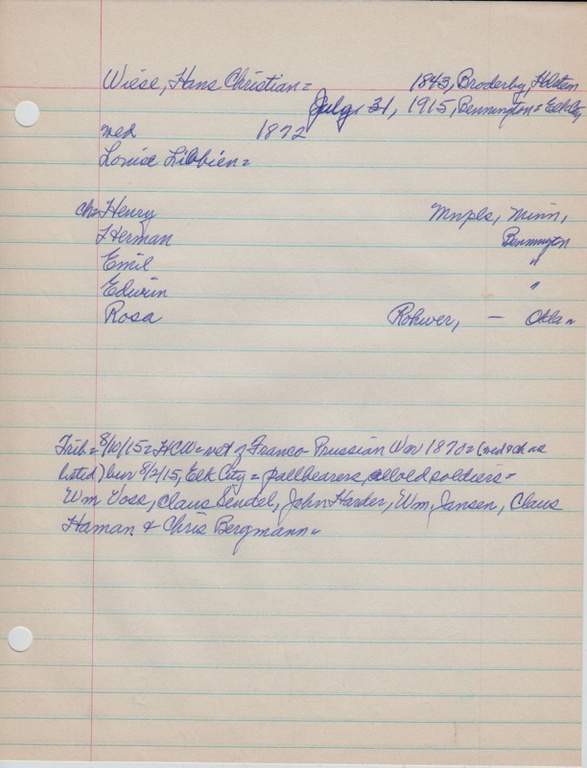 Wiese, Hans Christian = 1843, Broderby, Holstein
July 31, 1915, Bennington = Elk City
wed 1872
Louise Libbien =
ch = Henry Mnpls, Minn,
Herman Bennington
Emil "
Edwin "
Rosa Rohwer, — Okla =
Trib = 8/10/15 = HCW = vet of Franco-Prussian War 1870 = (wed & ch as
listed) bur 8/2/15, Elk City = pallbearers, all old soldiers =
Wm Voss, Claus Seudel, John Harder, Wm, Jansen, Claus
Haman & Chris Bergmann =